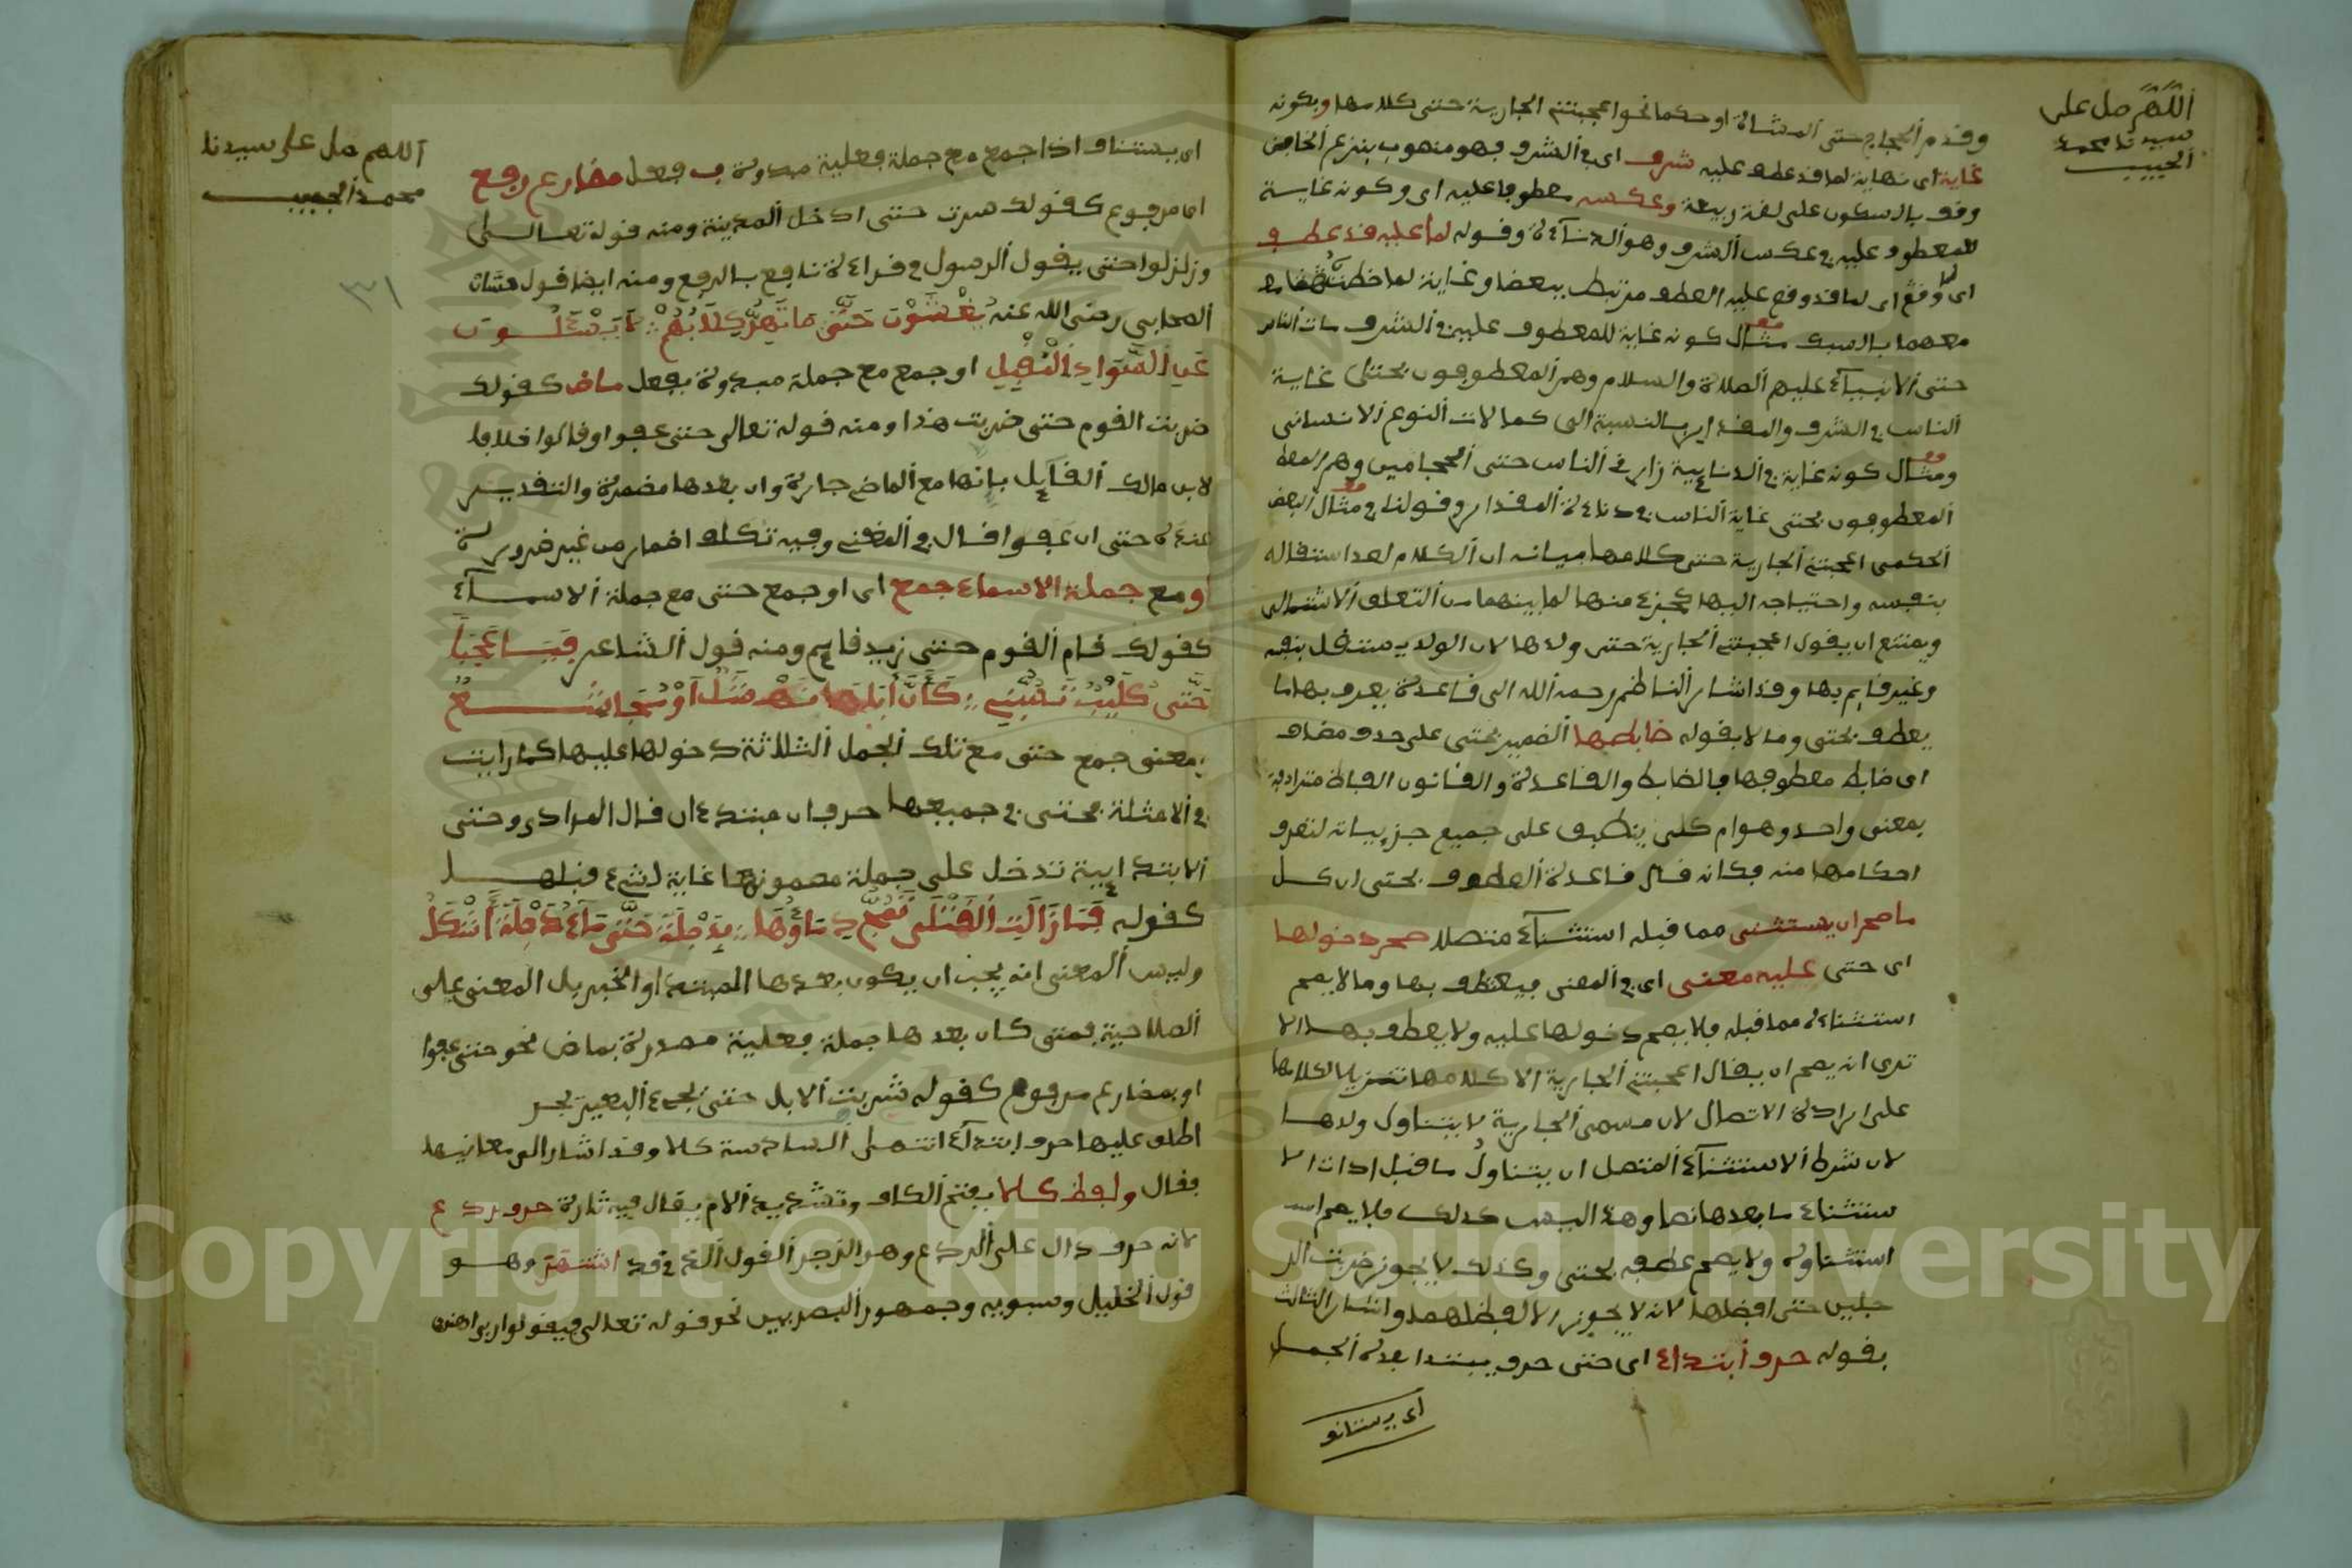 اللهم صل على
سيدنا محمد
الحبيب
وقدم الحجاج حتى المشاة او حكما نحو اعجبتني الجارية حتى كلامها وبكونه
غاية اى نهاية لما قد عطف عليه شرف اى في الشرف فهو منصوب بنزع الخافض
وقف بالسكون على لغة ربيعة وعكسه معطوفا عليه اى وكونه غاية
للمعطوف عليه في عكس الشرف وهو الدناءة وقوله لما عليه قد عطف
اى لما قد وقع عليه العطف مرتبط ببعضا وغاية لما
معهما بالسبك مثال كونه غاية للمعطوف عليه في الشرف مات الناس
حتى الانبياء عليهم الصلاة والسلام وهم المعطوفون بحتى غاية
الناس في الشرف والمقدار بالنسبة الى كمالات النوع الانسانى
ومثال كونه غاية في الدناءة زارني الناس حتى الحجامين وهم
المعطوفون بحتى غاية الناس في دناءة المقدار وقولنا في مثال البعض
الحكمى اعجبتني الجارية حتى كلامها بيانه ان الكلام لعد استقاله
بنفسه واحتياجه اليها كجزء منها لما بينهما من التعلق الاشتمالى
ويمتنع ان يقول اعجبتني الجارية حتى ولدها لان الولد مستقل بنفسه
وغير قايم بها وقد اشار الناظم رحمه الله الى قاعدة يعرف بها ما
يعطف بحتى وما لا بقوله ضابطها الضمير بحتى على حذف مضاف
اى ضابط معطوفها فالضابط والقاعدة والقانون الفاظ مترادفة
بمعنى واحد وهو امر كلى ينطبق على جميع جزيياته لتعرف
احكامها منه فكانه قال قاعدة العطف بحتى ان كل
ما صح ان يستثنى مما قبله استثناء متصلا صح دخولها
اى حتى عليه معنى اى في المعنى فيعطف بها وما لا يصح
استثناءه مما قبله فلا يصح دخولها عليه ولا يعطف بها الا
ترى انه يصح ان يقال اعجبتني الجارية الا كلامها تنزيلا لكلامها
على ارادة الاتصال لان مسمى الجارية لا يتناول ولدها
لان شرط الاستثناء المتصل ان يتناول ما قبل ادات الا
ستثناء ما بعدها نصا وهذا ليس كذلك فلا يصح
استثناوه ولا يصح عطفه بحتى وكذلك لا يجوز ضربت الر
جلين حتى افضلها لانه لا يجوز الا افضلهما واشار الثالث
بقوله حرف ابتداء اى حتى حرف يبتدا بعده الجمل
اى يستانف
اللهم صل على سيدنا
محمد الحبيب
٣١
اى يستناف اذا جمع مع جملة فعلية مبدوة ب فعل مضارع رفع
اى مرفوع كقولك سرت حتى ادخل المدينة ومنه قوله تعالى
وزلزلوا حتى يقول الرسول في قراءة نافع بالرفع ومنه ايضا قول حسان
الصحابي رضى الله عنه يغشون حتى ما تهر كلابهم لا يسئلون
عن السواد المقبل او جمع مع جملة مبدوة بفعل ماض كقولك
ضربت القوم حتى ضربت هذا ومنه قوله تعالى حتى عفوا وقالوا خلافا
لابن مالك القايل بانها مع الماضي جارة وان بعدها مضمرة والتقدير
عنده حتى ان عفوا قال في المغني وفيه تكلف اضمار من غير ضرورة
او مع جملة الاسماء جمع اى او جمع حتى مع جملة الاسماء
كقولك قام القوم حتى زيد قايم ومنه قول الشاعر فيا عجبا
حتى كليب تسبني كان اباها نهشل او مجاشع
بمعنى جمع حتى مع تلك الجمل الثلاثة دخولها عليها كما رايت
في الامثلة بحتى في جميعها حرف ابتداء قال المرادى وحتى
الابتدايية تدخل على جملة مضمونها غاية لشيء قبلها
كقوله فما زالت القتلى تمج دماؤها بدجلة حتى ماء دجلة اشكل
وليس المعنى انه يجب ان يكون بعدها المبتدا والخبر بل المعنى على
الصلاحية فمتى كان بعدها جملة فعلية مصدرة بماض نحو حتى عفوا
او بمضارع مرفوع كقوله شربت الابل حتى يجىء البعير يجر
اطلق عليها حرف ابتداء انتهى السادسة كلا وقد اشار الى معانيها
فقال ولفظ كلا بفتح الكاف وتشديد الام يقال فيه تارة حرف ردع
لانه حرف دال على الردع وهو الزجر القول الذى قد اشتهر وهو
قول الخليل وسيبويه وجمهور البصريين نحو قوله تعالى فيقول ربي اهانن
Copyright © King Saud University